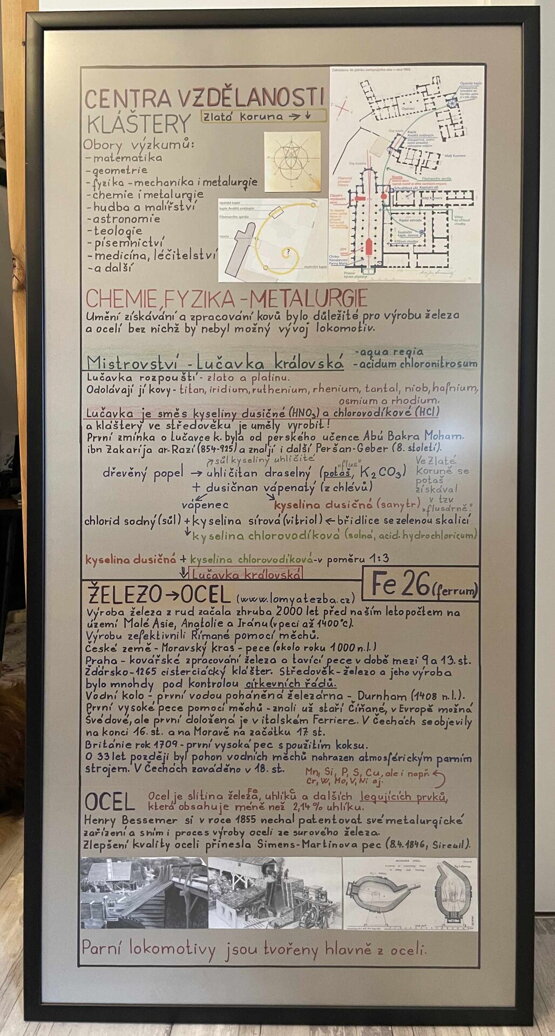 CENTRA VZDĚLANOSTI
KLÁŠTERY Zlatá Koruna → ↓
Obory výzkumů:
-matematika
-geometrie
-fyzika - mechanika i metalurgie
-chemie i metalurgie
-hudba a malířství
-astronomie
-teologie
-písemnictví
-medicína, léčitelství
-a další
CHEMIE, FYZIKA - METALURGIE
Umění získávání a zpracování kovů bylo důležité pro výrobu železa
a oceli bez nichž by nebyl možný vývoj lokomotiv.
Mistrovství - Lučavka královská
-aqua regia
-acidum chloronitrosum
Lučavka rozpouští - zlato a platinu.
Odolávají jí kovy - titan, iridium, ruthenium, rhenium, tantal, niob, hafnium,
osmium a rhodium.
Lučavka je směs kyseliny dusičné (HNO3) a chlorovodíkové (HCl)
a kláštery ve středověku je uměly vyrobit!
První zmínka o lučavce k. byla od perského učence Abú Bakra Moham.
ibn Zakaríja ar-Rází (854-925) a znají i další Peršan-Geber (8. století).
sůl kyseliny uhličité
dřevěný popel → uhličitan draselný (potaš, "flus" K2CO3)
+ dusičnan vápenatý (z chlévů)
Ve Zlaté
Koruně se
potaš
získával
v tzv.
"flusárně"
vápenec
kyselina dusičná (sanytr)
chlorid sodný (sůl) + kyselina sírová (vitriol) ← břidlice se zelenou skalicí
kyselina chlorovodíková (solná, acid. hydrochloricum)
kyselina dusičná + kyselina chlorovodíková - v poměru 1:3
Lučavka královská
ŽELEZO → OCEL (www.lomyatezba.cz)
Fe 26 (ferrum)
Výroba železa z rud začala zhruba 2000 let před naším letopočtem na
území Malé Asie, Anatolie a Iránu (v peci až 1400°c).
Výrobu zefektivnili Římané pomocí měchů.
České země - Moravský kras - pece (okolo roku 1000 n.l.)
Praha - kovářské zpracování železa a tavící pece v době mezi 9 a 13. st.
Žďársko-1265 cisterciácký klášter. Středověk - železo a jeho výroba
bylo mnohdy pod kontrolou církevních řádů.
Vodní kolo - první vodou poháněná železárna - Durnham (1408 n.l.).
První vysoké pece pomocí měchů - znali už staří Číňané, v Evropě možná
Švédové, ale první doložená je v italském Ferriere. V Čechách se objevily
na konci 16. st. a na Moravě na začátku 17 st.
Británie rok 1709 - první vysoká pec s použitím koksu.
O 33 let později byl pohon vodních měchů nahrazen atmosférickým parním
strojem. V Čechách zaváděno v 18. st.
Mn, Si, P, S, Cu, ale i např.
Cr, W, Mo, V, Ni aj.
OCEL
Ocel je slitina železa, Fe uhlíku a dalších legujících prvků,
která obsahuje méně než 2,14 % uhlíku.
Henry Bessemer si v roce 1855 nechal patentovat své metalurgické
zařízení a s ním i proces výroby oceli ze surového železa.
Zlepšení kvality oceli přinesla Simens-Martinova pec (8.4.1846, Sireuil).
Parní lokomotivy jsou tvořeny hlavně z oceli.